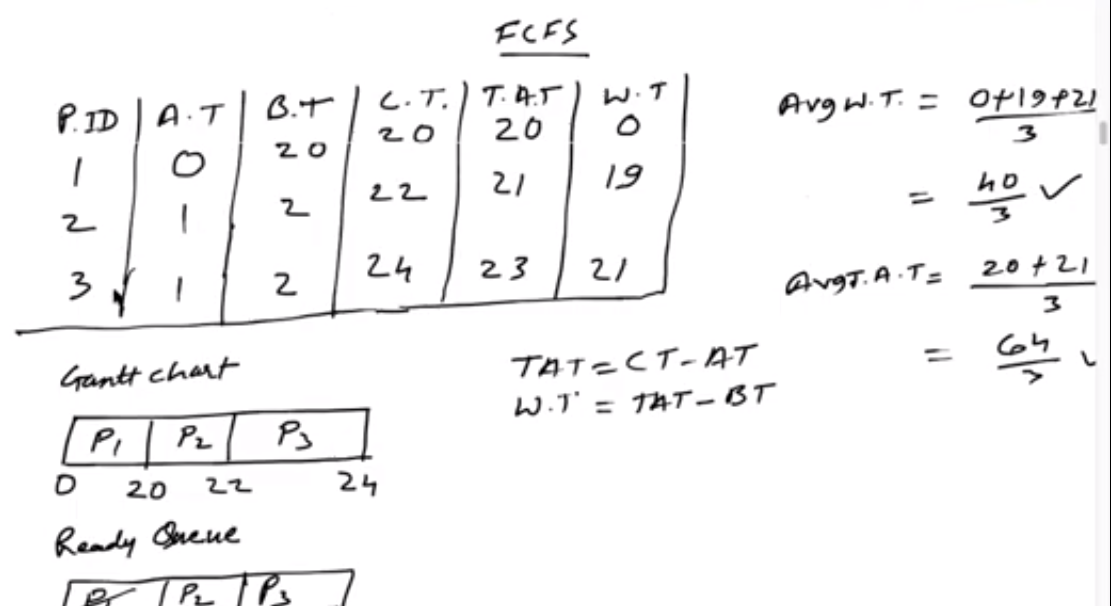 FCFS
P.ID A.T B.T C.T. T.A.T W.T
1 0 20 20 20 0
2 1 2 22 21 19
3 1 2 24 23 21
Avg W.T. = 0+19+21 / 3
= 40 / 3 ✓
Avg T.A.T = 20+21 / 3
= 64 / 3
TAT = CT - AT
W.T = TAT - BT
Gantt chart
P1 P2 P3
0 20 22 24
Ready Queue
P1 P2 P3